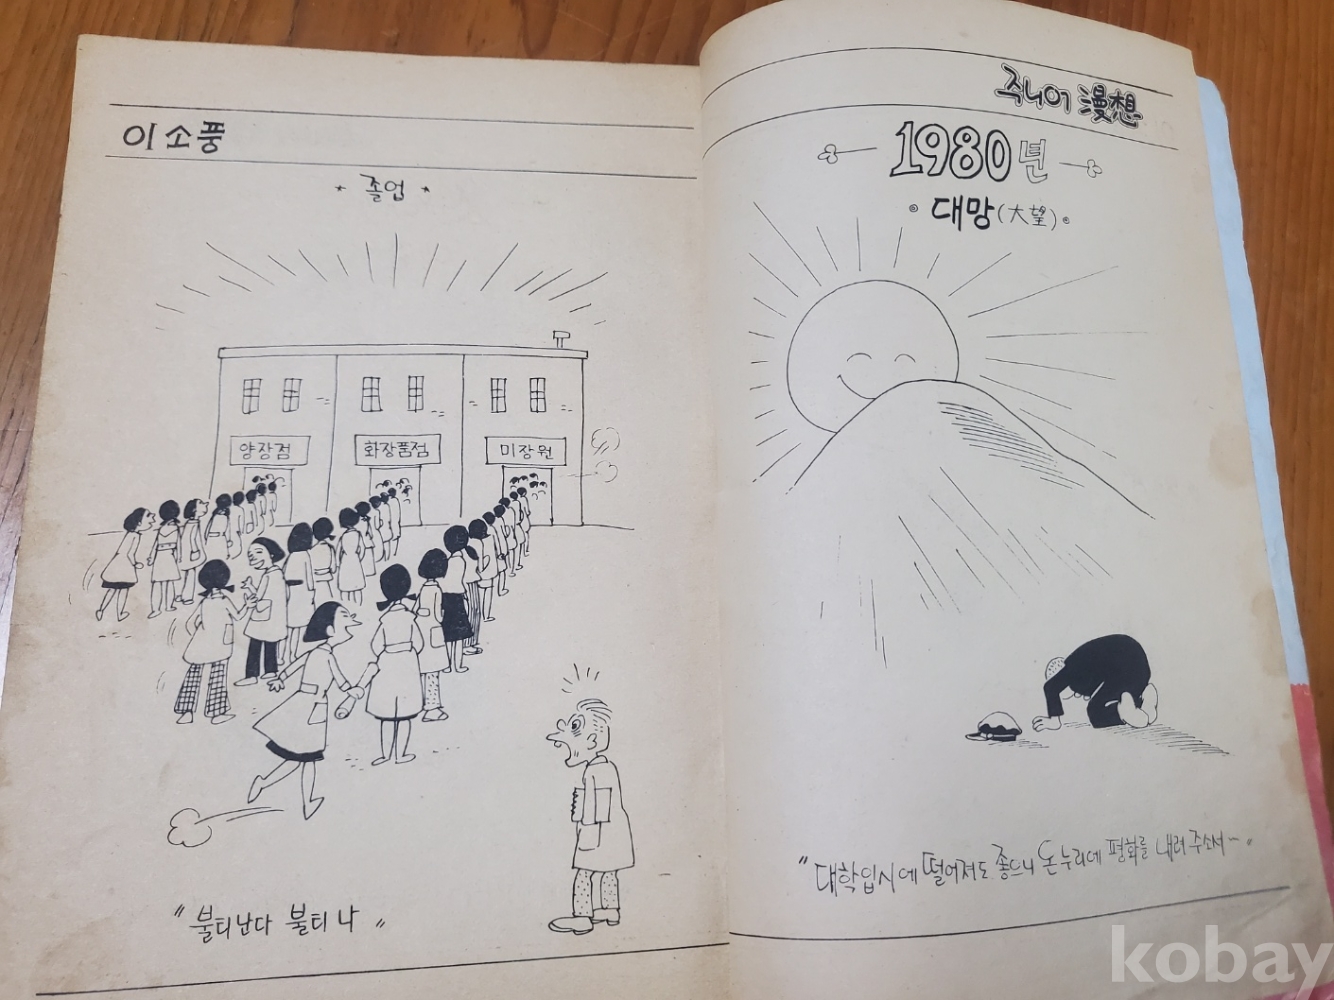 이소풍
* 졸업 *
양장점
화장품점
미장원
"불티난다 불티나"
주니어 漫想
1980년
대망(大望)
"대학입시에 떨어져도 좋으니 온누리에 평화를 내려주소서~"
kobay